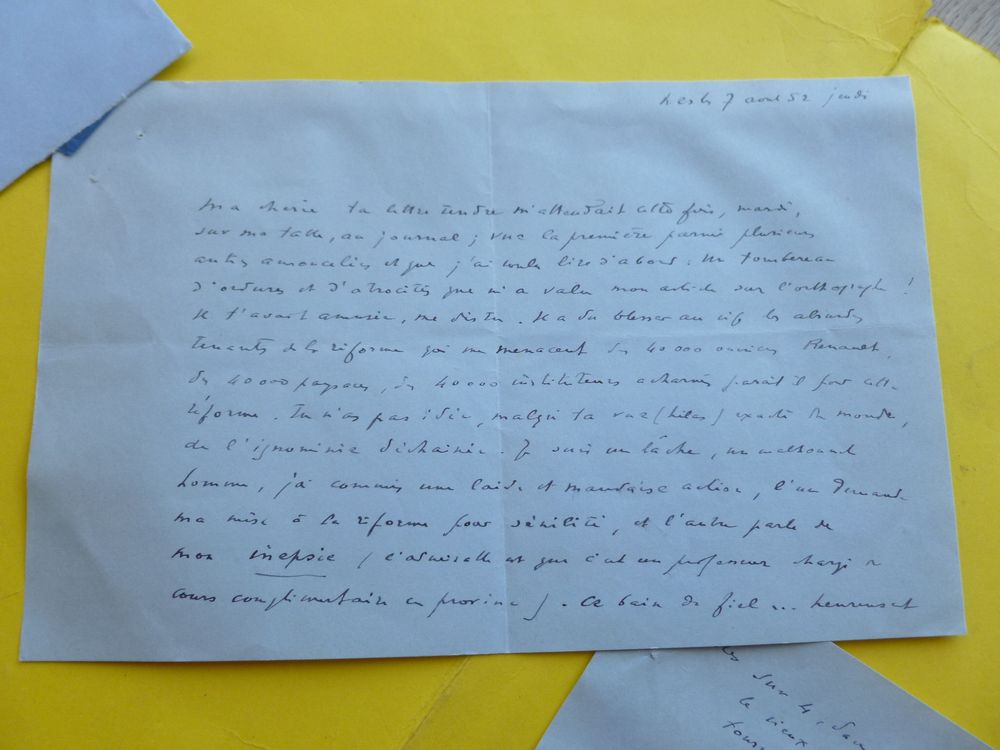 7 août 52 jeudi
ma chérie ta lettre tendre m'attendait cette fois, mardi,
sur ma table, au journal ; vue la première parmi plusieurs
autres amoncelées et que j'ai voulu lire d'abord. Un tombereau
d'ordures et d'atrocités que m'a valu mon article sur l'orthographe !
Il t'avait amusée, me dis tu. Il a du blesser au vif les absurdes
tenants de la réforme qui me menacent des 40 000 ouvriers Renault,
des 40 000 paysans, des 40 000 instituteurs acharnés parait il pour cette
réforme. Tu n'as pas idée, malgré ta vue (hélas) exacte du monde,
de l'ignominie déchainée. Je suis un lâche, un malhonnête
homme, j'ai commis une laide et mauvaise action, l'un demande
ma mise à la réforme pour sénilité, et l'autre parle de
mon inepsie (l'admirable est que c'est un professeur chargé de
cours complémentaire en province). Ce bain de fiel ... heureusement
les
sur 4
le vieux